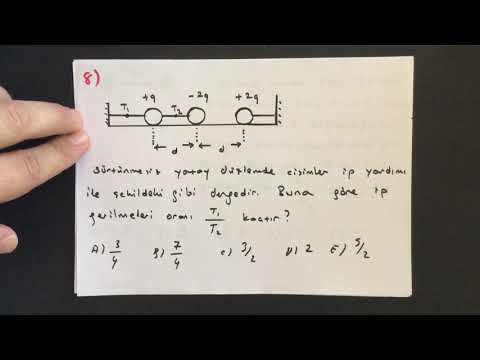 8)
+q -2q +2q
T₁ T₂
d d
Sürtünmesiz yatay düzlemde cisimler ip yardımı
ile şekildeki gibi dengedir. Buna göre ip
gerilmeleri oranı T₁/T₂ kaçtır?
A) 3/4 B) 7/4 C) 3/2 D) 2 E) 5/2